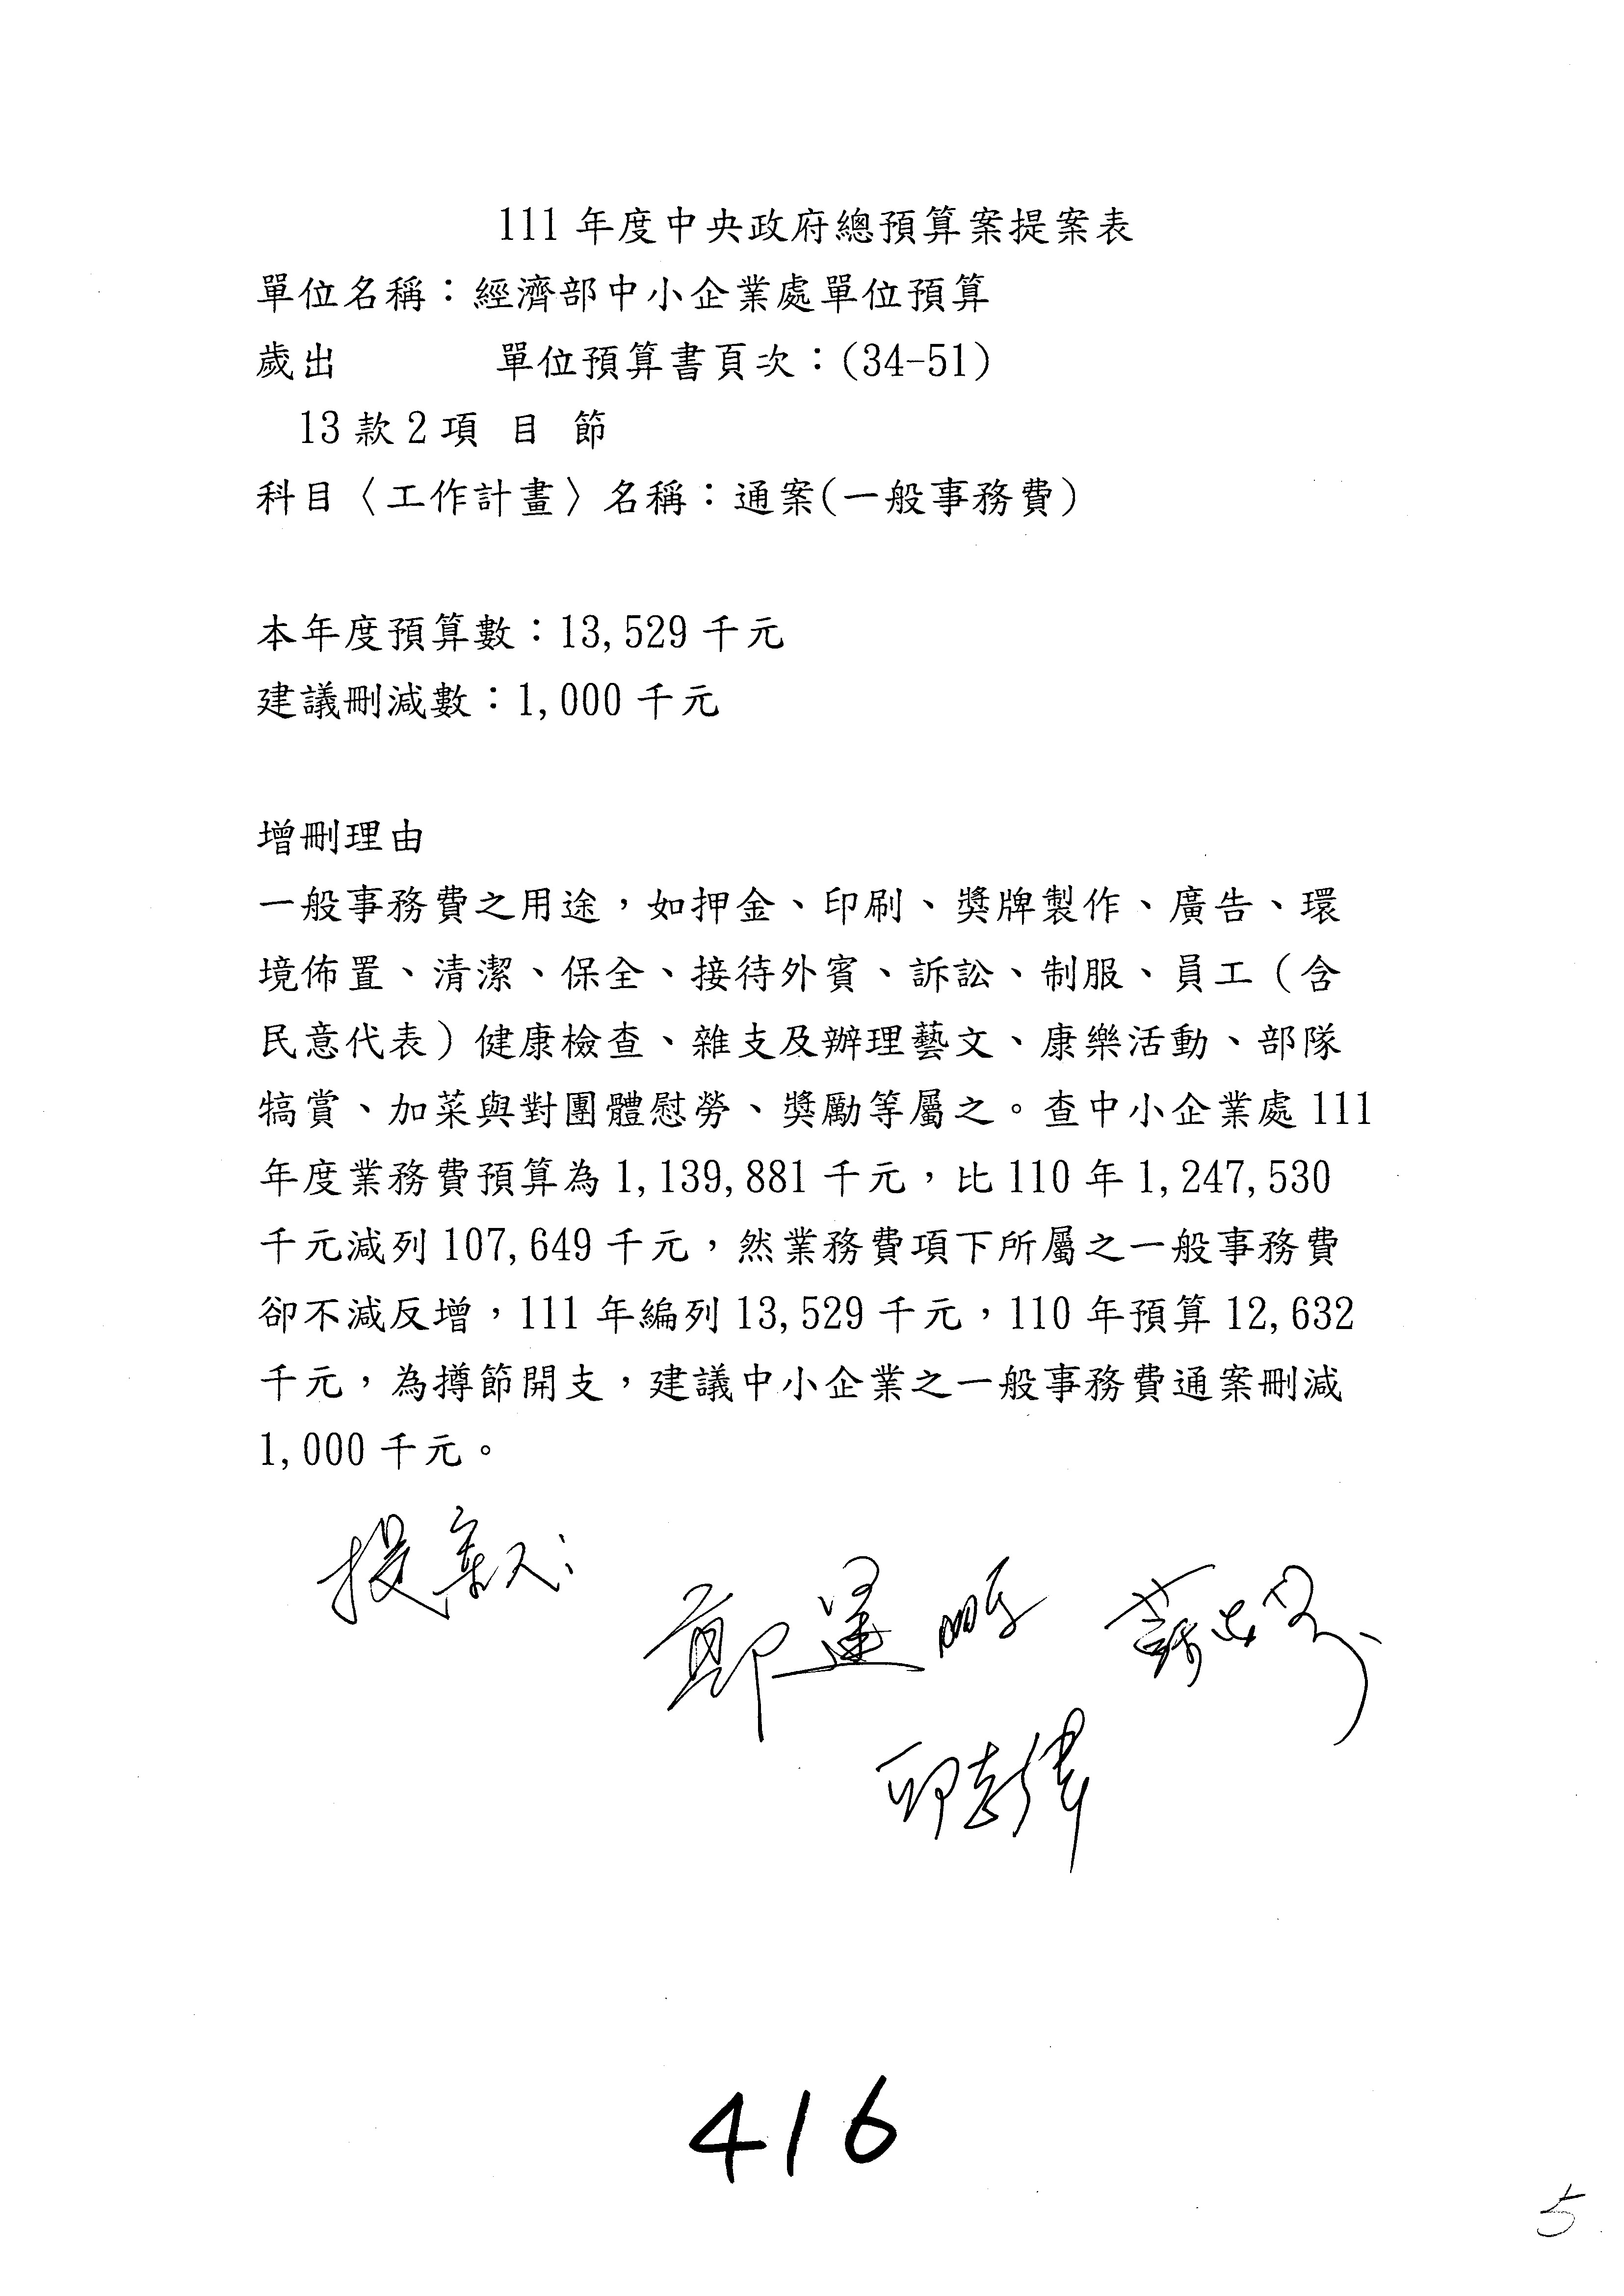 111 年度中央政府總預算案提案表
單位名稱：經濟部中小企業處單位預算
歲出　　　單位預算書頁次：(34-51)
13 款 2 項 目 節
科目〈工作計畫〉名稱：通案(一般事務費)
本年度預算數：13,529 千元
建議刪減數：1,000 千元
增刪理由
一般事務費之用途，如押金、印刷、獎牌製作、廣告、環
境佈置、清潔、保全、接待外賓、訴訟、制服、員工（含
民意代表）健康檢查、雜支及辦理藝文、康樂活動、部隊
犒賞、加菜與對團體慰勞、獎勵等屬之。查中小企業處 111
年度業務費預算為 1,139,881 千元，比 110 年 1,247,530
千元減列 107,649 千元，然業務費項下所屬之一般事務費
卻不減反增，111 年編列 13,529 千元，110 年預算 12,632
千元，為撙節開支，建議中小企業之一般事務費通案刪減
1,000 千元。
提案人：
鄭運鵬 蘇志芬
邱志偉
416
5